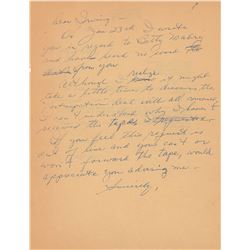 Dear Irving –
On Jan 23rd I wrote
you in regard to Betty
and have heard no word
from you
Although I realize it might
take a little time to discuss the
interruption deal will all concerned,
I can't understand why I haven't
received the tape
If you feel this request is
out of line and you can't or
won't forward the tape, would
appreciate you advising me –
Sincerely,